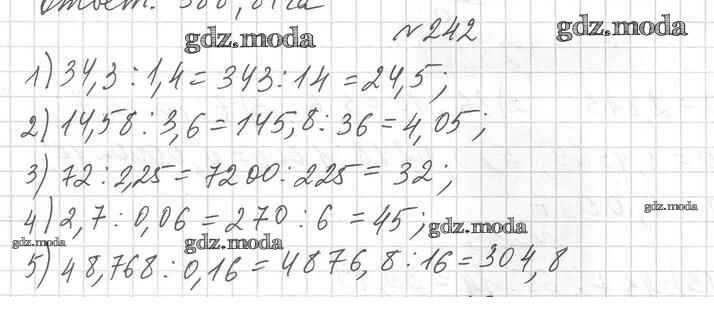 Ответ: 300,
gdz.moda
№ 242
gdz.moda
1) 34,3 : 1,4 = 343 : 14 = 24,5;
2) 14,58 : 3,6 = 145,8 : 36 = 4,05;
3) 72 : 2,25 = 7200 : 225 = 32;
gdz.moda
4) 2,7 : 0,06 = 270 : 6 = 45;
gdz.moda
gdz.moda
gdz.moda
5) 48,768 : 0,16 = 4876,8 : 16 = 304,8